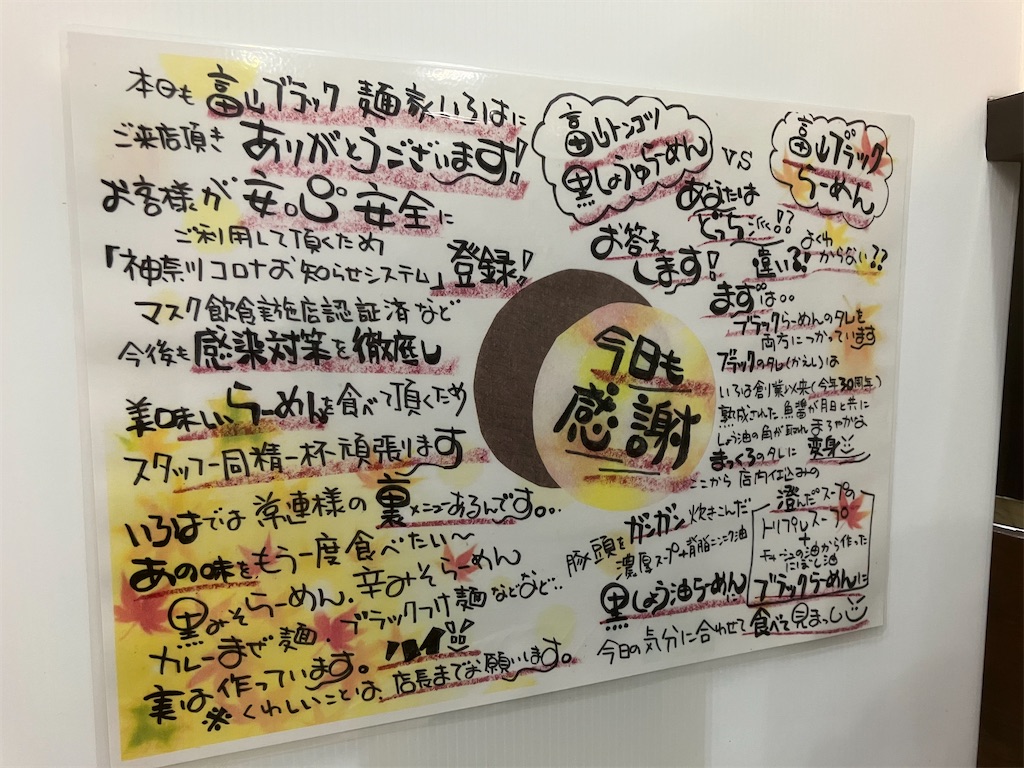 本日も富山ブラック麺家いろはに
ご来店頂き ありがとうございます!
お客様が安心安全に
ご利用して頂くため
「神奈川コロナお知らせシステム」登録!!
マスク飲食実施店認証済など
今後も感染対策を徹底し
美味しいらーめんを食べて頂くため
スタッフ一同精一杯頑張ります
いろはでは常連様の裏メニューあるんです。。。
あの味をもう一度食べたい〜
黒みそらーめん・辛みそらーめん
カレーまぜ麺・ブラックつけ麺などなど・・
実は作っています。ハイ!!
※くわしいことは、店長までお願いします。
今日も
感謝
富山トンコツ
黒しょうゆらーめん
VS
富山ブラック
らーめん
あなたは
どっち派!?
お答え
します!
違い?! よくわ
からない??
まずは。。
ブラックらーめんのタレを
両方につかっています
ブラックのタレ(かえし)は
いろは創業以来(今年30周年)
熟成された魚醤が月日と共に
しょう油の角が取れまろやかな
まっくろのタレに変身
ここから店内仕込みの
豚頭をガンガン炊きこんだ
濃厚スープ+背脂ニンニク油
黒しょう油らーめんに
澄んだスープの
トリプルスープ
+
チャーシューの油から作った
にぼし油
ブラックらーめんに
今日の気分に合わせて食べて見ましい